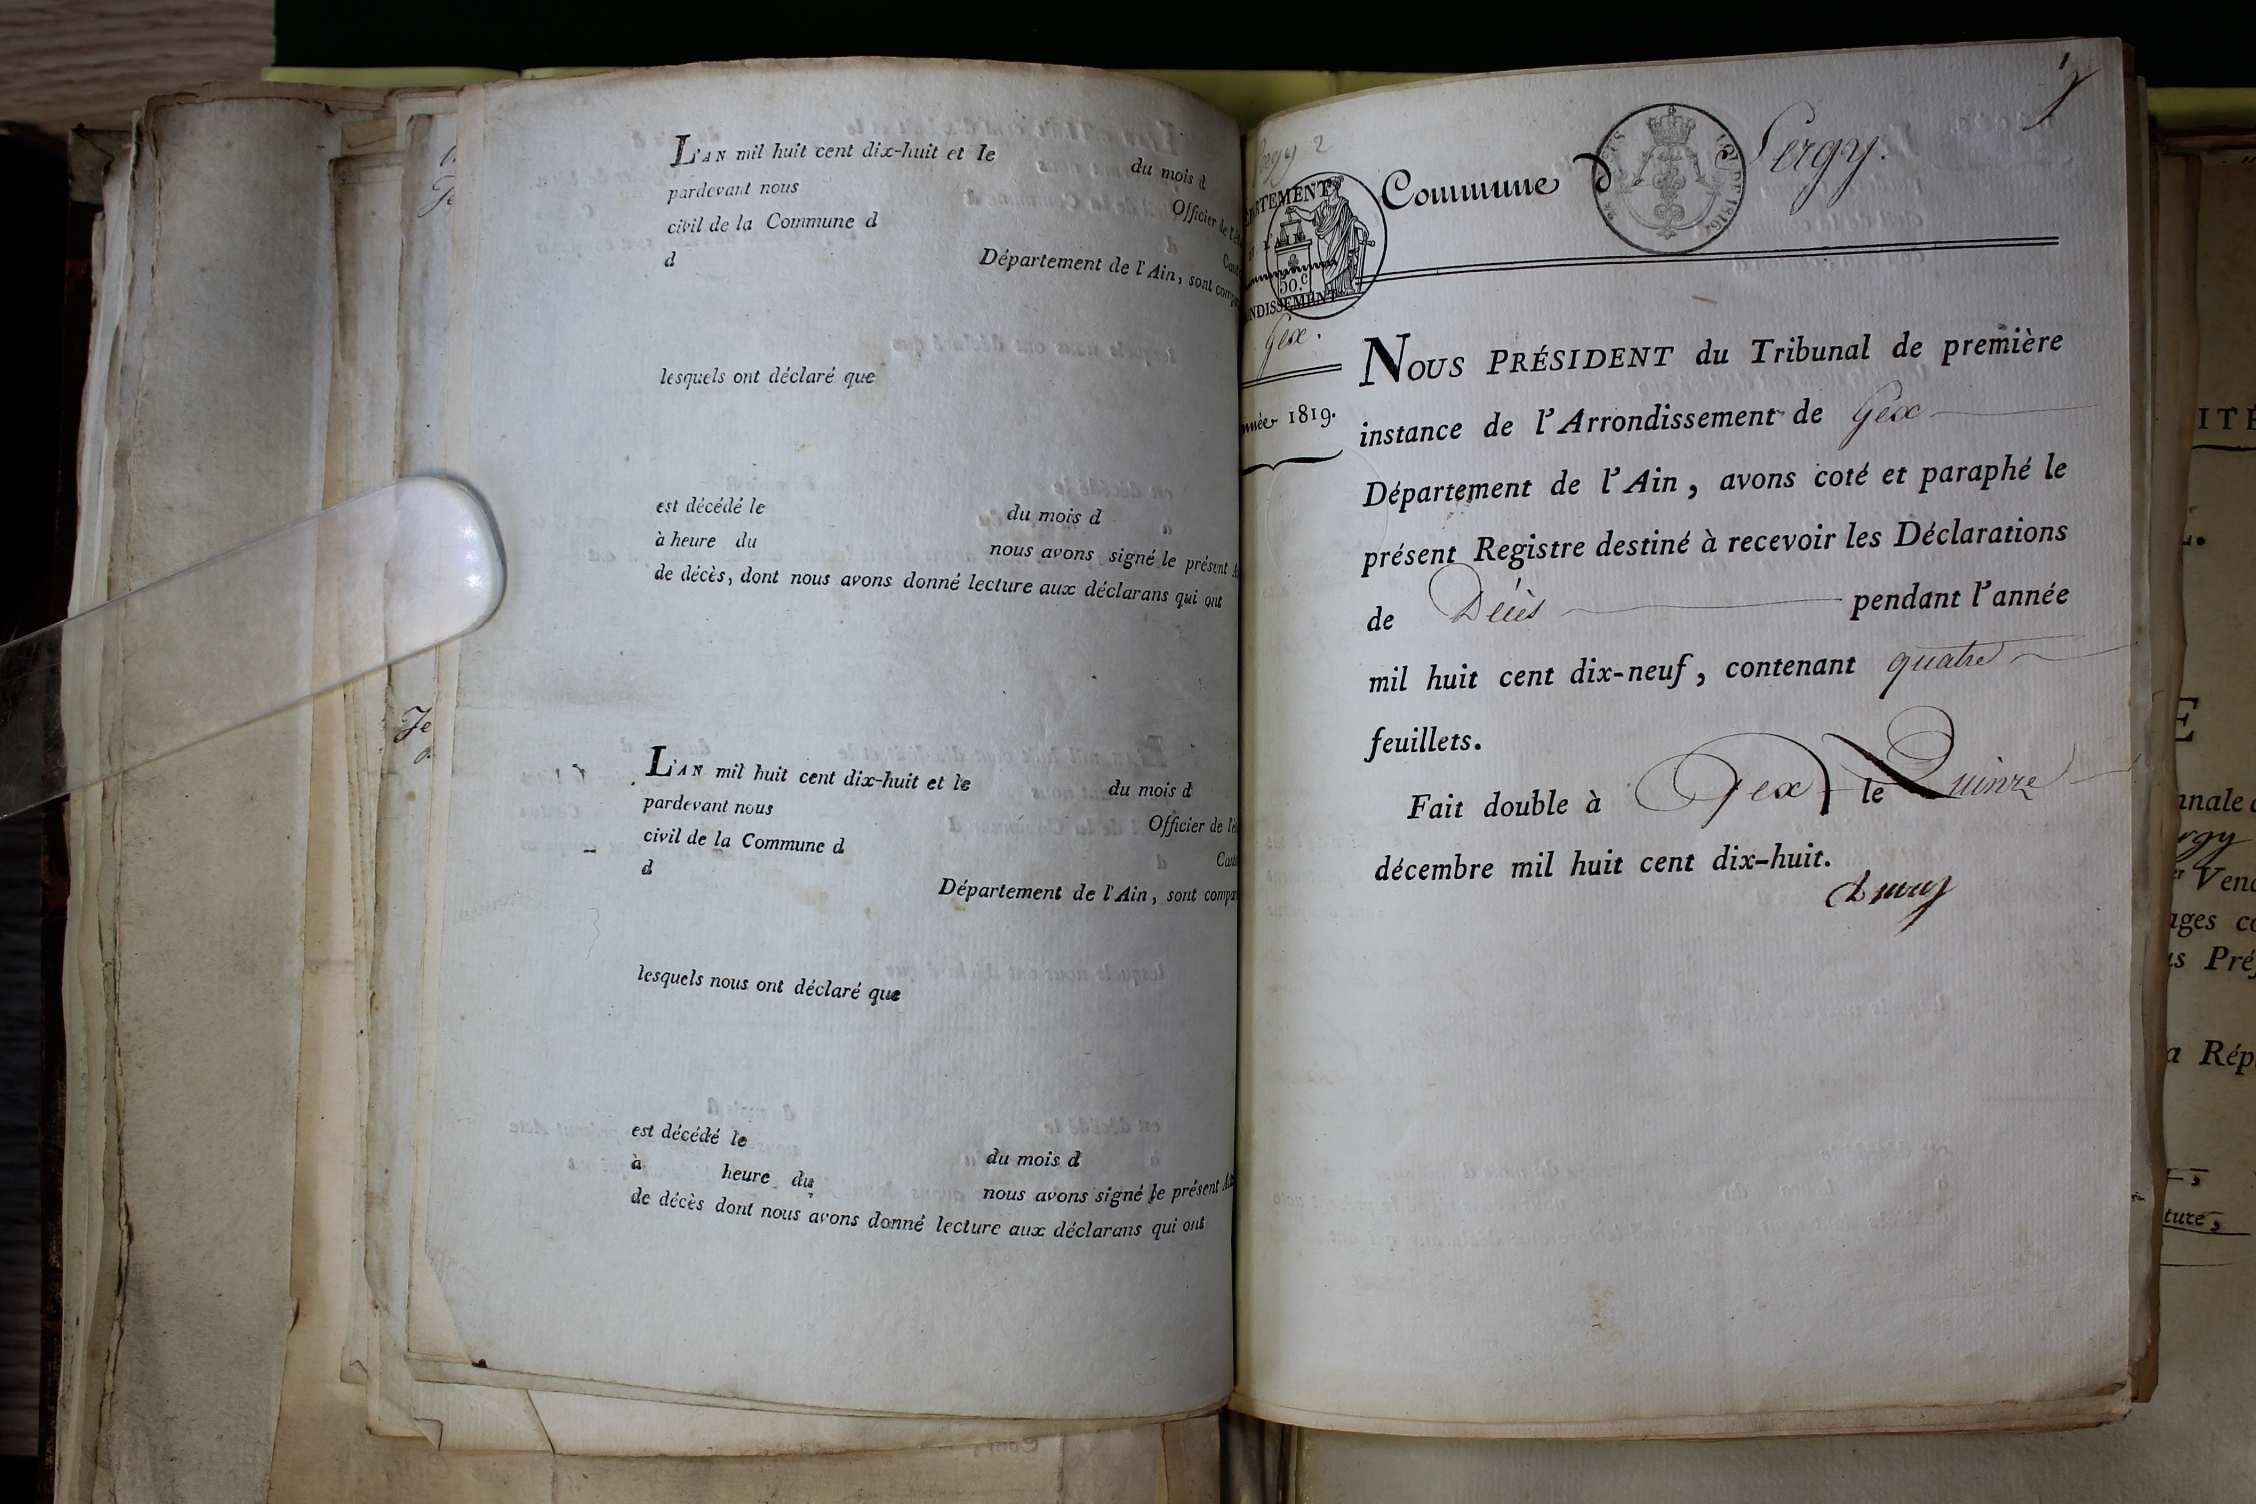 L'AN mil huit cent dix-huit et le du mois d
pardevant nous Officier de l'é
civil de la Commune d Cant
d Département de l'Ain, sont compa
lesquels ont déclaré que
est décédé le du mois d
à heure du nous avons signé le présent
de décès, dont nous avons donné lecture aux déclarans qui ont
L'AN mil huit cent dix-huit et le du mois d
pardevant nous Officier de l'é
civil de la Commune d Cant
d Département de l'Ain, sont compa
lesquels nous ont déclaré que
est décédé le du mois d
à heure du nous avons signé le présent
de décès dont nous avons donné lecture aux déclarans qui ont
1
Sergy 2
Commune d Sergy.
PARTEMENT
L'AIN
50.c
NDISSEMENT
Gex.
nnée 1819.
NOUS PRÉSIDENT du Tribunal de première
instance de l'Arrondissement de Gex
Département de l'Ain, avons coté et paraphé le
présent Registre destiné à recevoir les Déclarations
de Décès pendant l'année
mil huit cent dix-neuf, contenant quatre
feuillets.
Fait double à Gex le Quinze
décembre mil huit cent dix-huit.
ITÉ
E
nnale
rgy
Vend
ages co
s Pré
a Rép
ture,